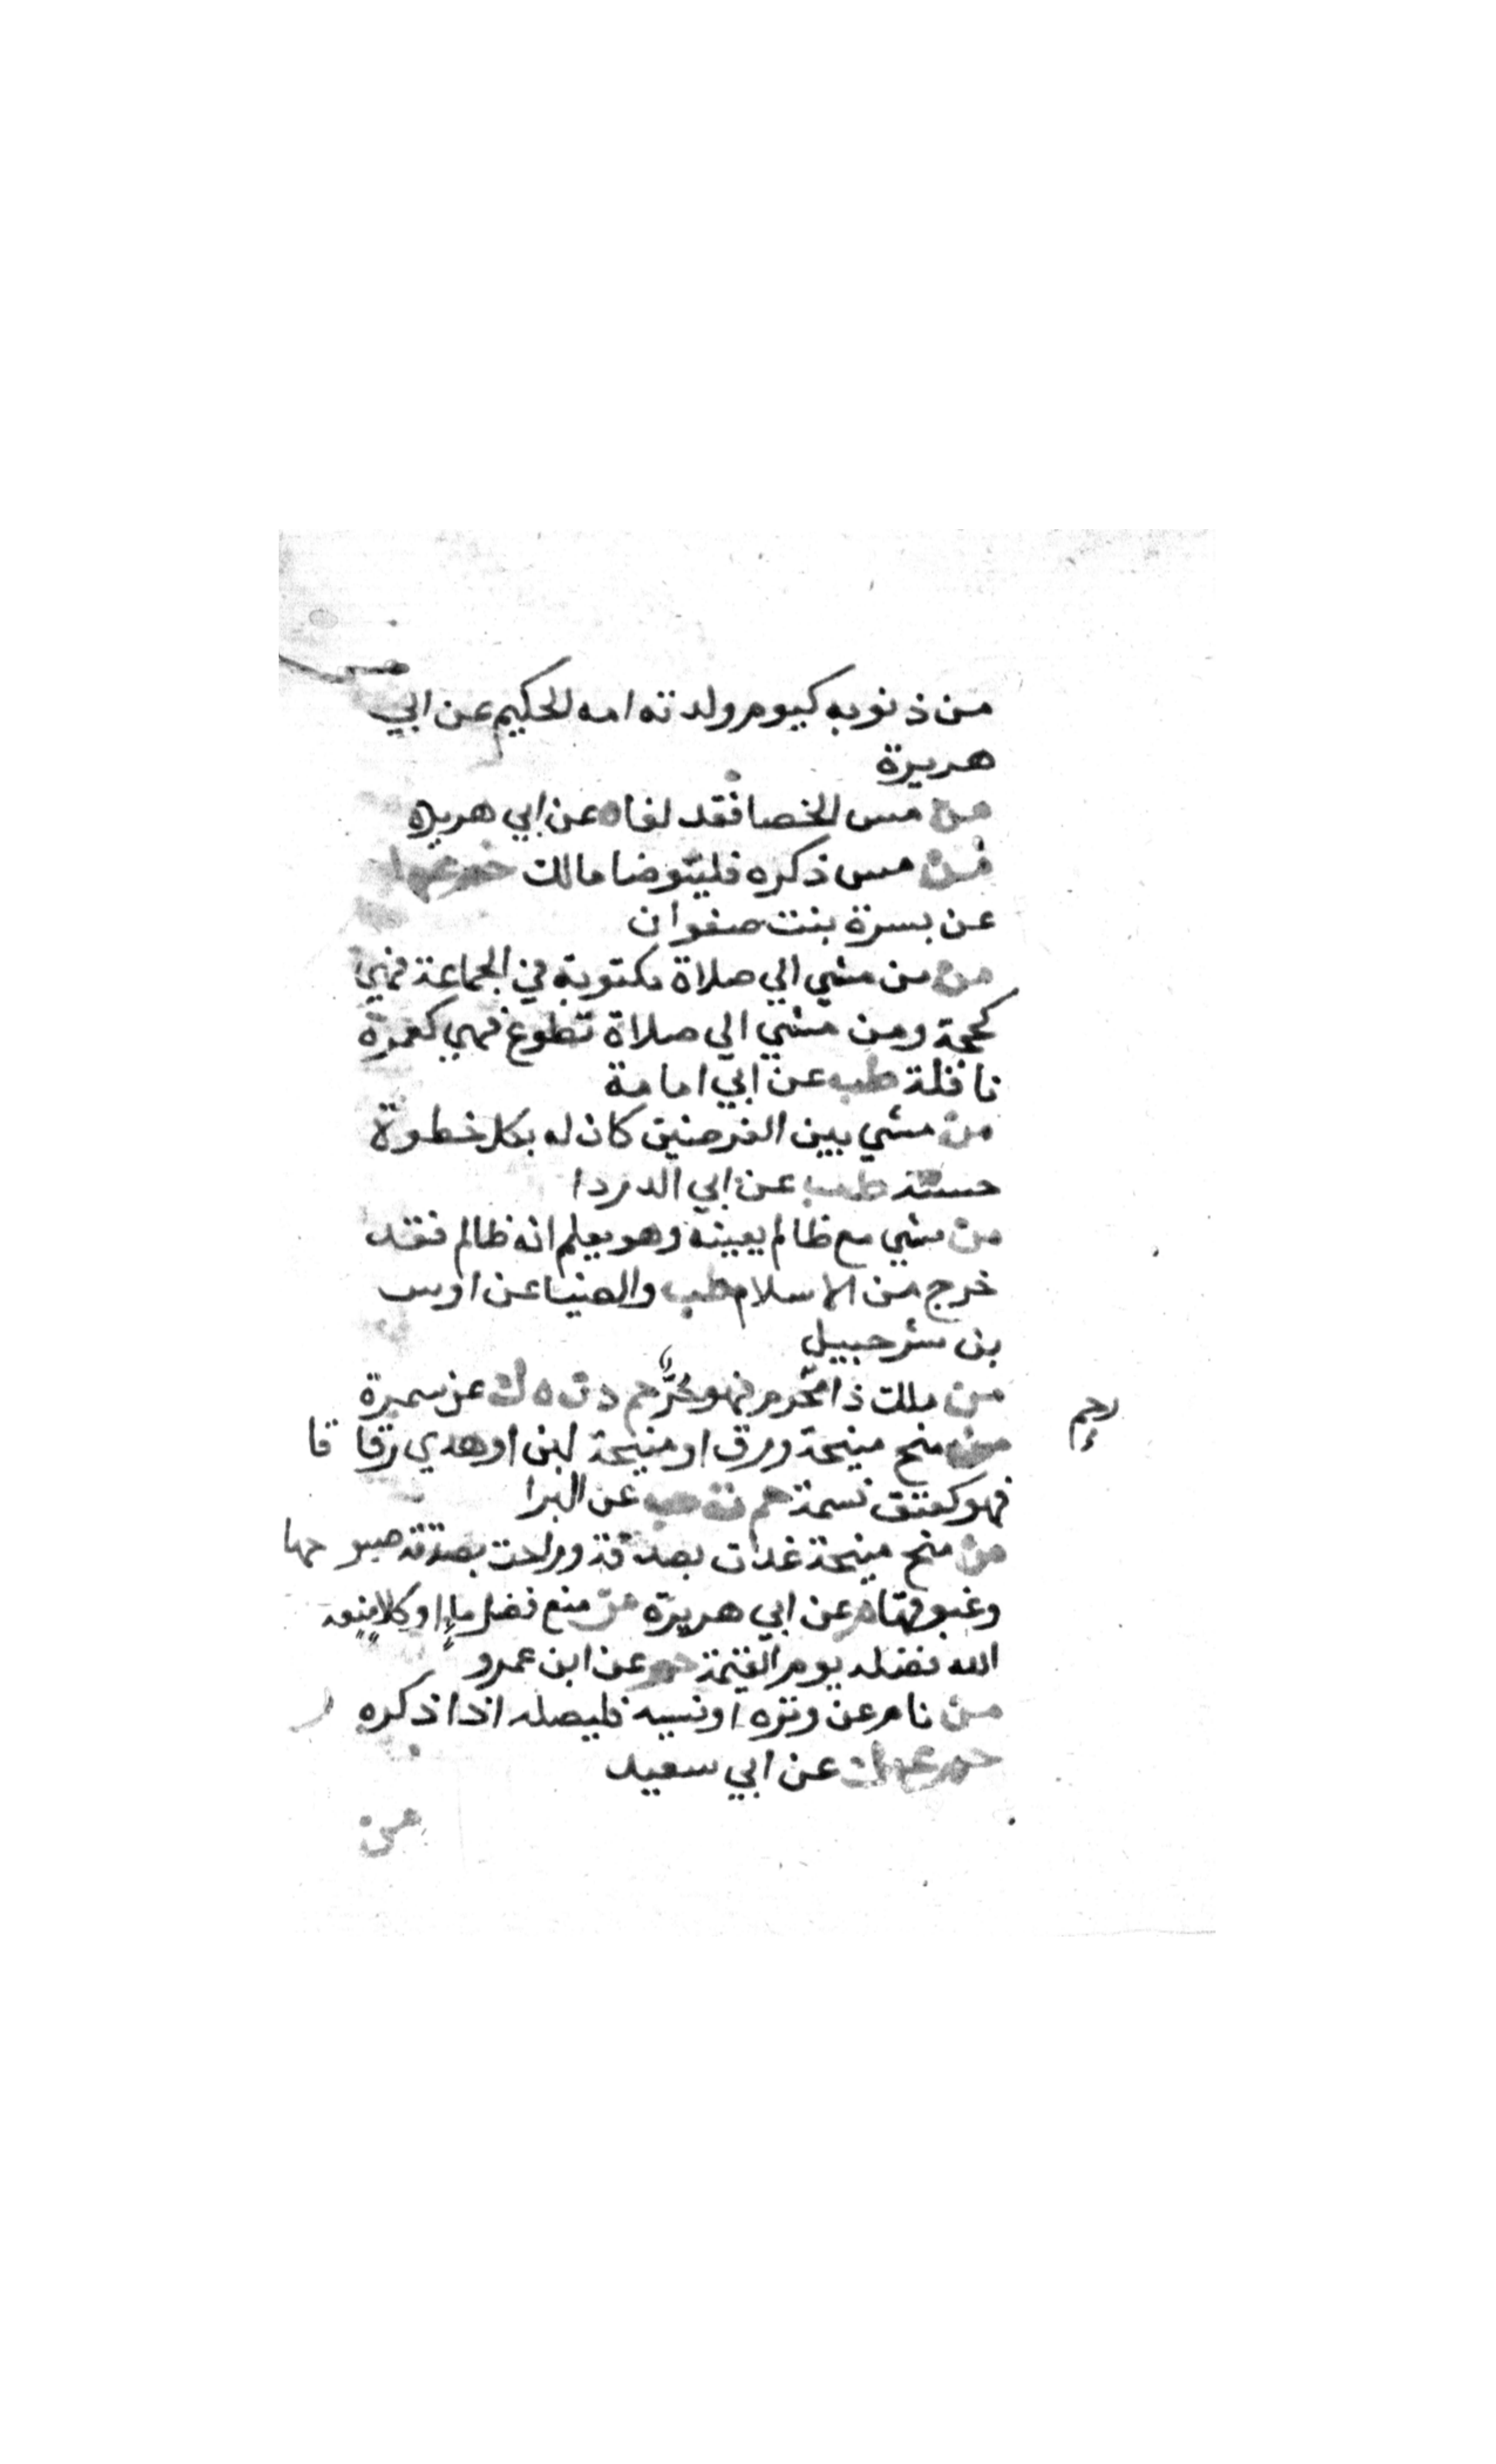 من ذنوبه كيوم ولدته امه الحكيم عن ابي
هريرة
من مس الحصا فقد لغا ه عن ابي هريرة
من مس ذكره فليتوضا مالك حم عم ك
عن بسرة بنت صفوان
من من مشي الي صلاة مكتوبة في الجماعة فهي
كحجة ومن مشي الي صلاة تطوع فهي كعمرة
نافلة طب عن ابي امامة
من مشي بين الغرضين كان له بكل خطوة
حسنة طب عن ابي الدردا
من مشي مع ظالم يعينه وهو يعلم انه ظالم فقد
خرج من الاسلام طب والضيا عن اوس
بن شرحبيل
من ملك ذا محرم فهو حر حم د ت ه ك عن سمرة
رحم
من منح منيحة ورق او منيحة لبن او هدي زقا قا
فهو كعتق نسمة حم ت حب عن البرا
من منح منيحة غدات بصدقة وراحت بصدقة صبو حها
وغبوقها م عن ابي هريرة من منع فضل ماء او كلا منعه
الله فضله يوم القيمة حم عن ابن عمرو
من نام عن وتره او نسيه فليصله اذا ذكره
حم عم ك عن ابي سعيد
من